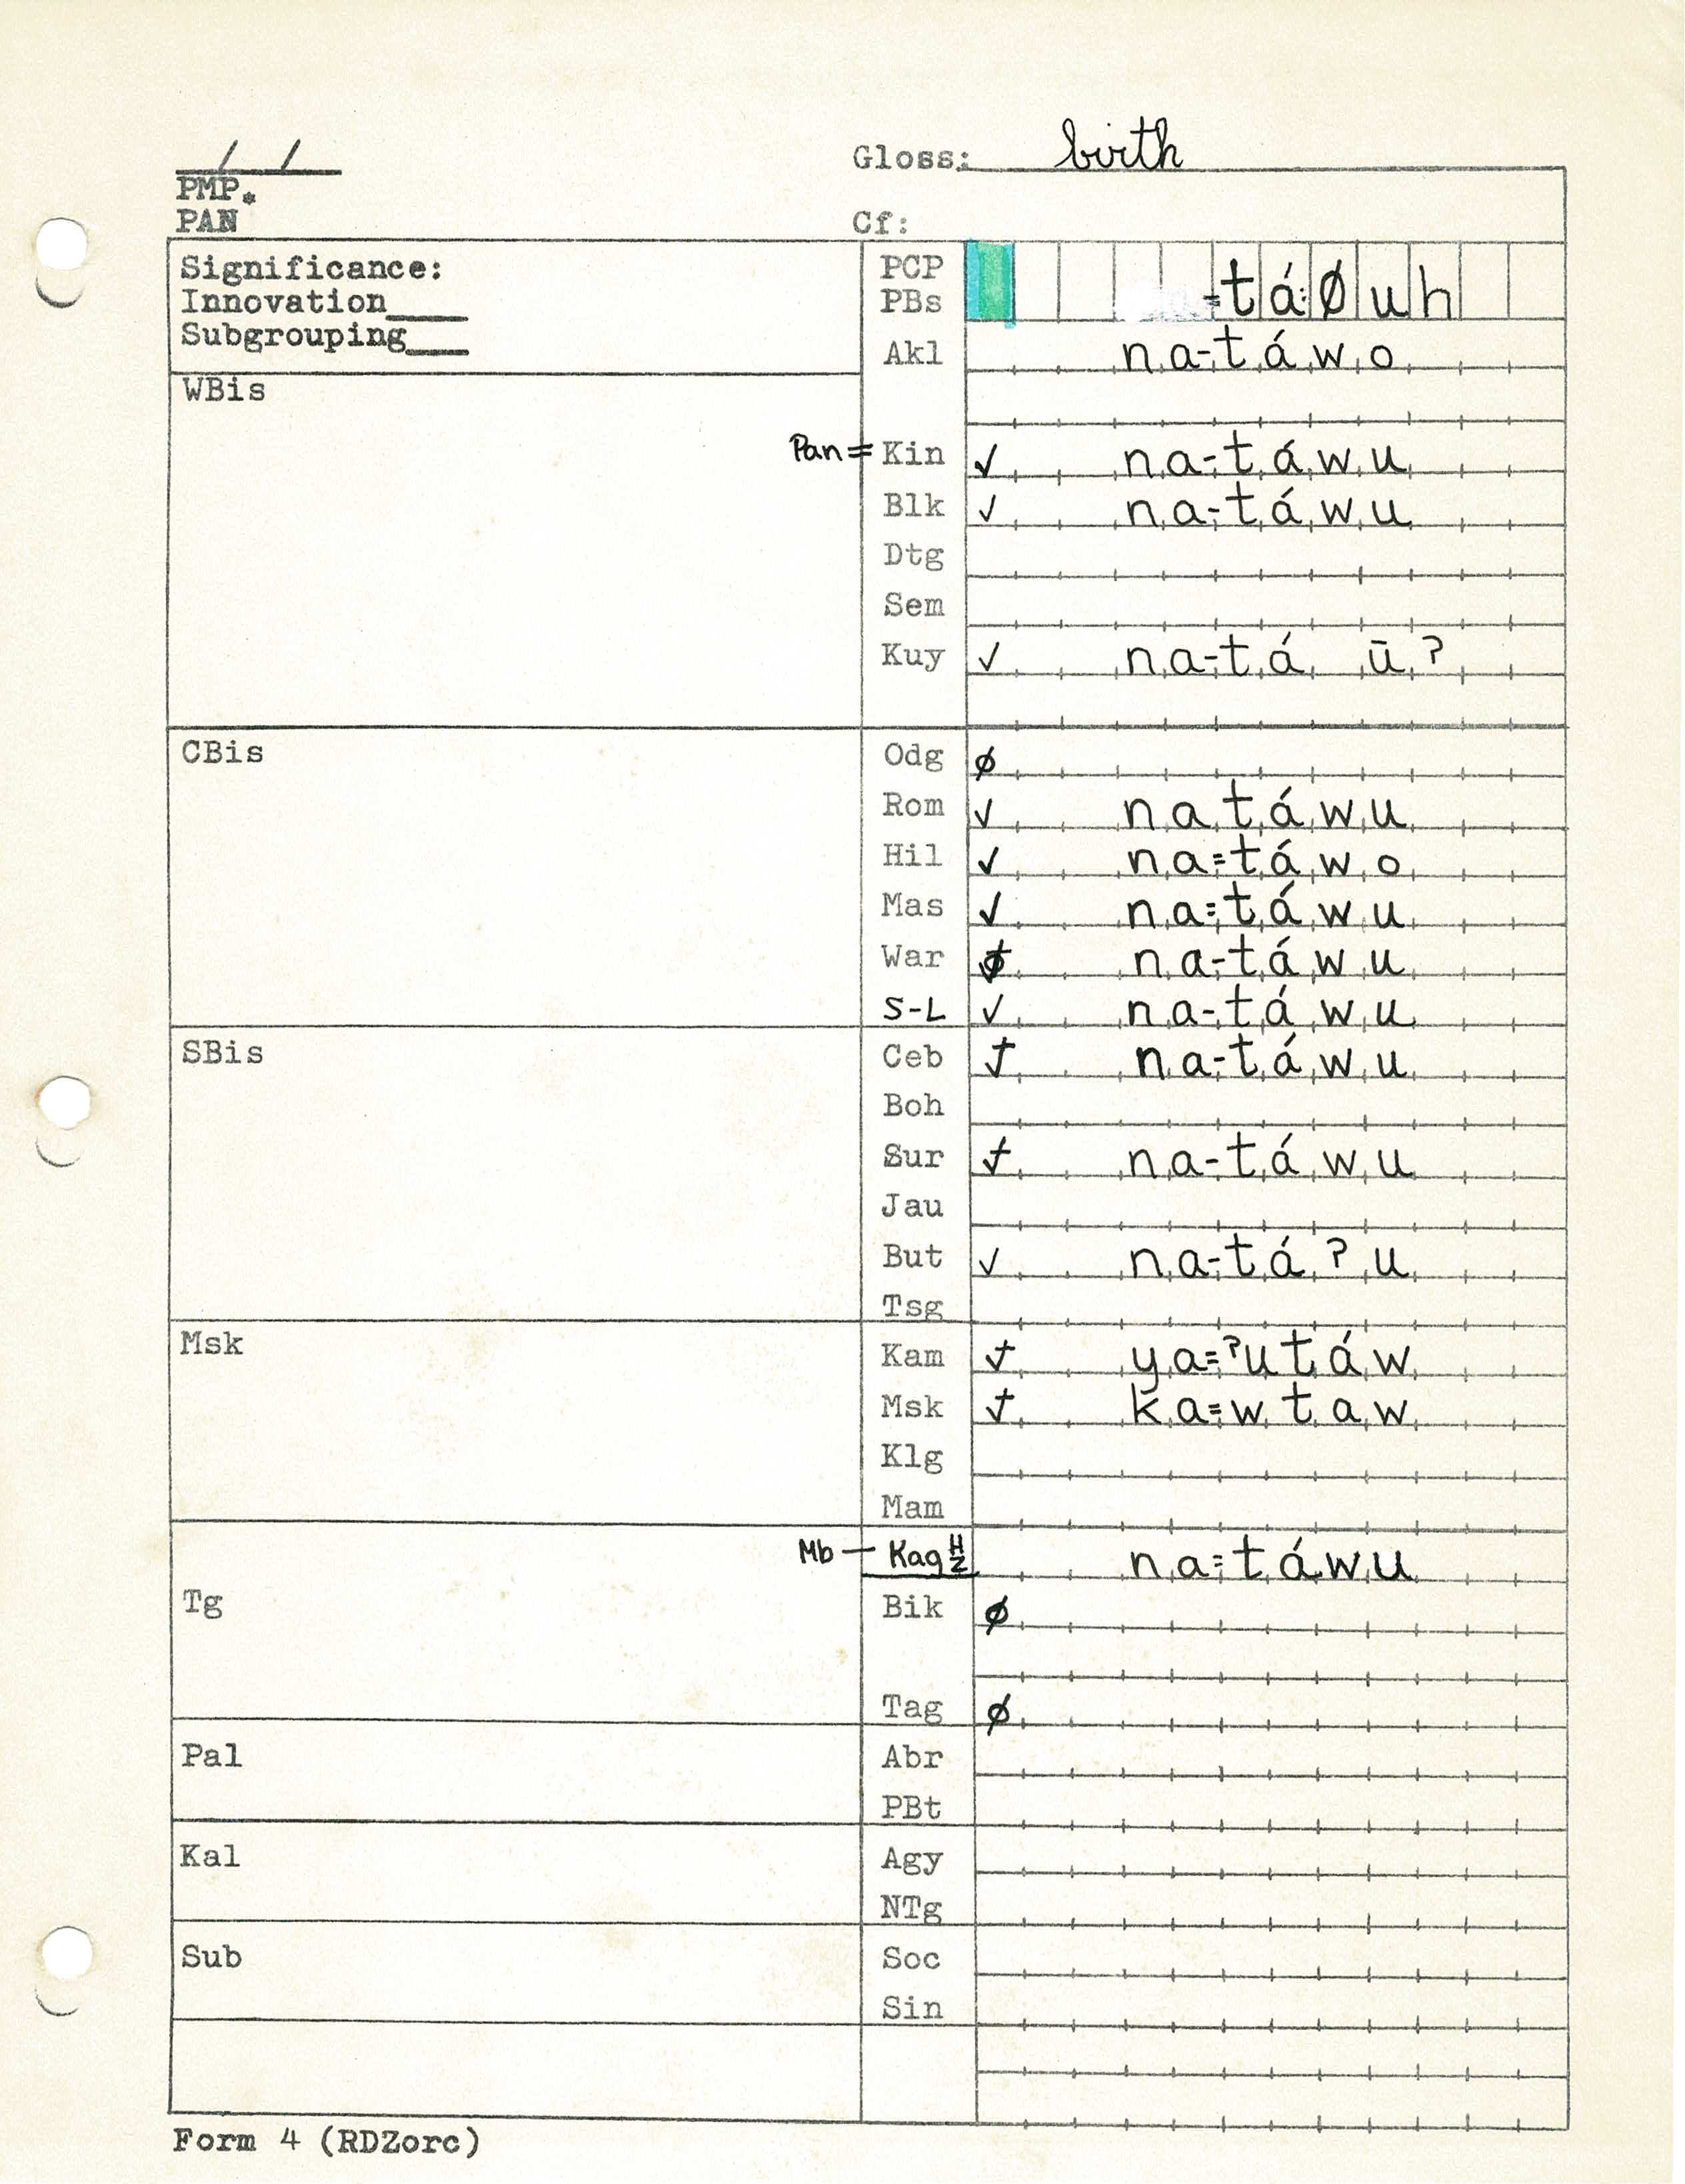 / /
Gloss: birth
PMP.
PAN
Cf:
Significance:
Innovation____
Subgrouping___
PCP
PBs =táØuh
Akl na-táwo
WBis
Pan = Kin ✓ na-táwu
Blk ✓ na-táwu
Dtg
Sem
Kuy ✓ na-tá ū?
CBis
Odg ø
Rom ✓ natáwu
Hil ✓ na=táwo
Mas ✓ na=táwu
War na-táwu
S-L ✓ na-táwu
SBis
Ceb na-táwu
Boh
Sur na-táwu
Jau
But ✓ na-tá?u
Tsg
Msk
Kam ya=?utáw
Msk ka=wtaw
Klg
Mam
Mb — Kag na=táwu
Tg
Bik ø
Tag ø
Pal
Abr
PBt
Kal
Agy
NTg
Sub
Soc
Sin
Form 4 (RDZorc)